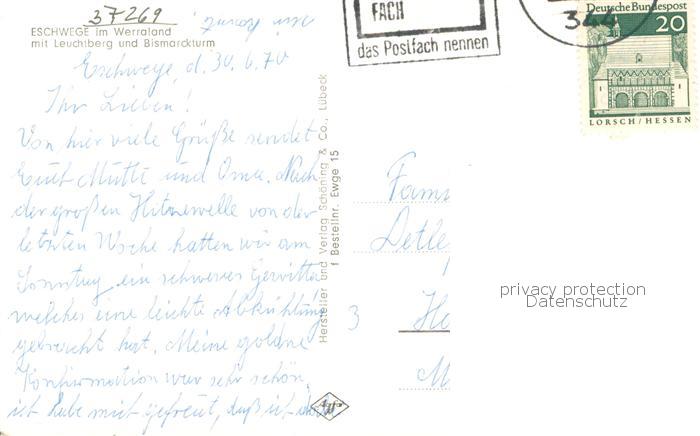 37269
ESCHWEGE im Werraland
mit Leuchtberg und Bismarckturm
Eschwege, d. 30.6.70
Ihr Lieben!
Von hier viele Grüße sendet
Euch Mutti und Oma. Nach
der großen Hitzewelle von der
letzten Woche hatten wir am
Sonntag ein schweres Gewitter
welches eine leichte Abkühlung
gebracht hat. Meine goldne
Konfirmation war sehr schön,
ich habe mich gefreut, daß ich
Hersteller und Verlag Schöning & Co., Lübeck
Bestellnr. Ewge 15
Agfa
FACH
das Postfach nennen
344
Deutsche Bundespost
20
LORSCH/HESSEN
Fam
Detle
3
Ho
M
privacy protection
Datenschutz